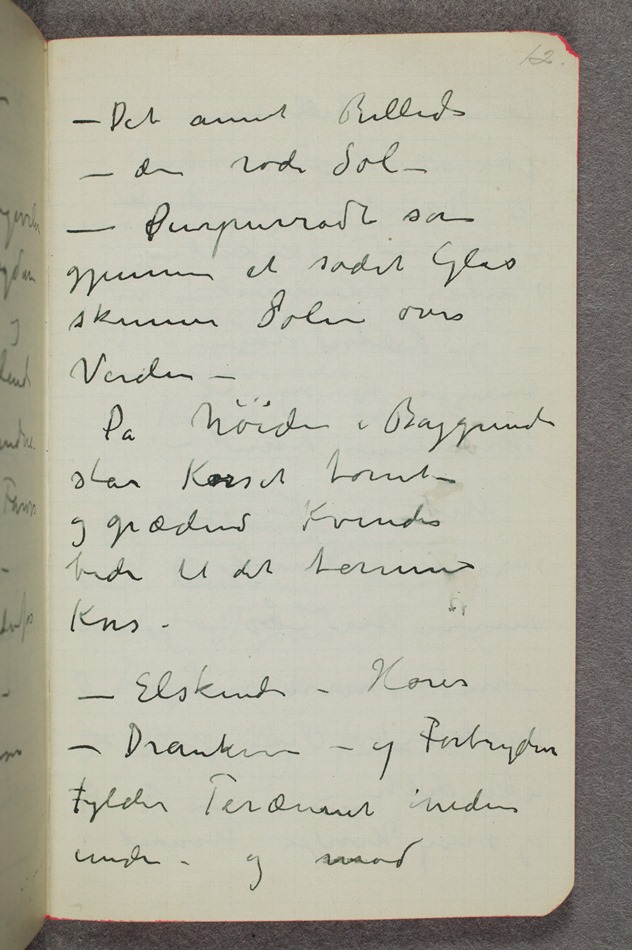 12.
– Det annet Billede
– den røde Sol –
– Purpurrødt som
gjennem et sodet Glas
skinner Solen over
Verden –
På höiden i Baggrunden
står Korset tomt –
og grædende Kvinder
beder til det tomme
Kors –
– Elskende – Horer
– Drankere – og Forbrydere
Fylder Terænnet neden
under – og mod